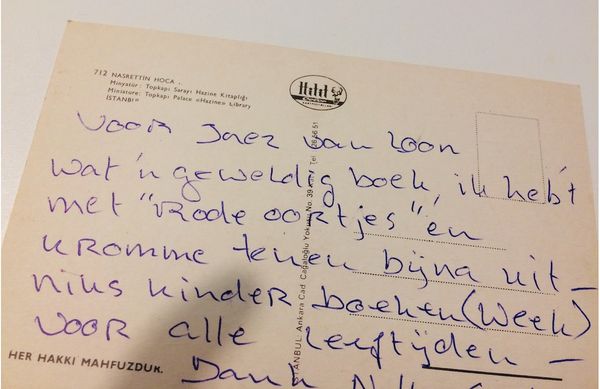 712 NASRETTİN HOCA .
Minyatür : Topkapi Sarayı Hazine Kitaplığı
Miniature : Topkapi Palace «Hazine» Library
İSTANBUL
Hitit
voor Jaez van loon
wat 'n geweldig boek, ik heb't
met "Rode oortjes" en
kromme tenen bijna uit –
niks kinder boeken (week)
voor alle leeftijden –
HER HAKKI MAHFUZDUR.
İSTANBUL. Ankara Cad Cağaloğlu Yokuşu No. 39 Tel 26 56 51
Dank